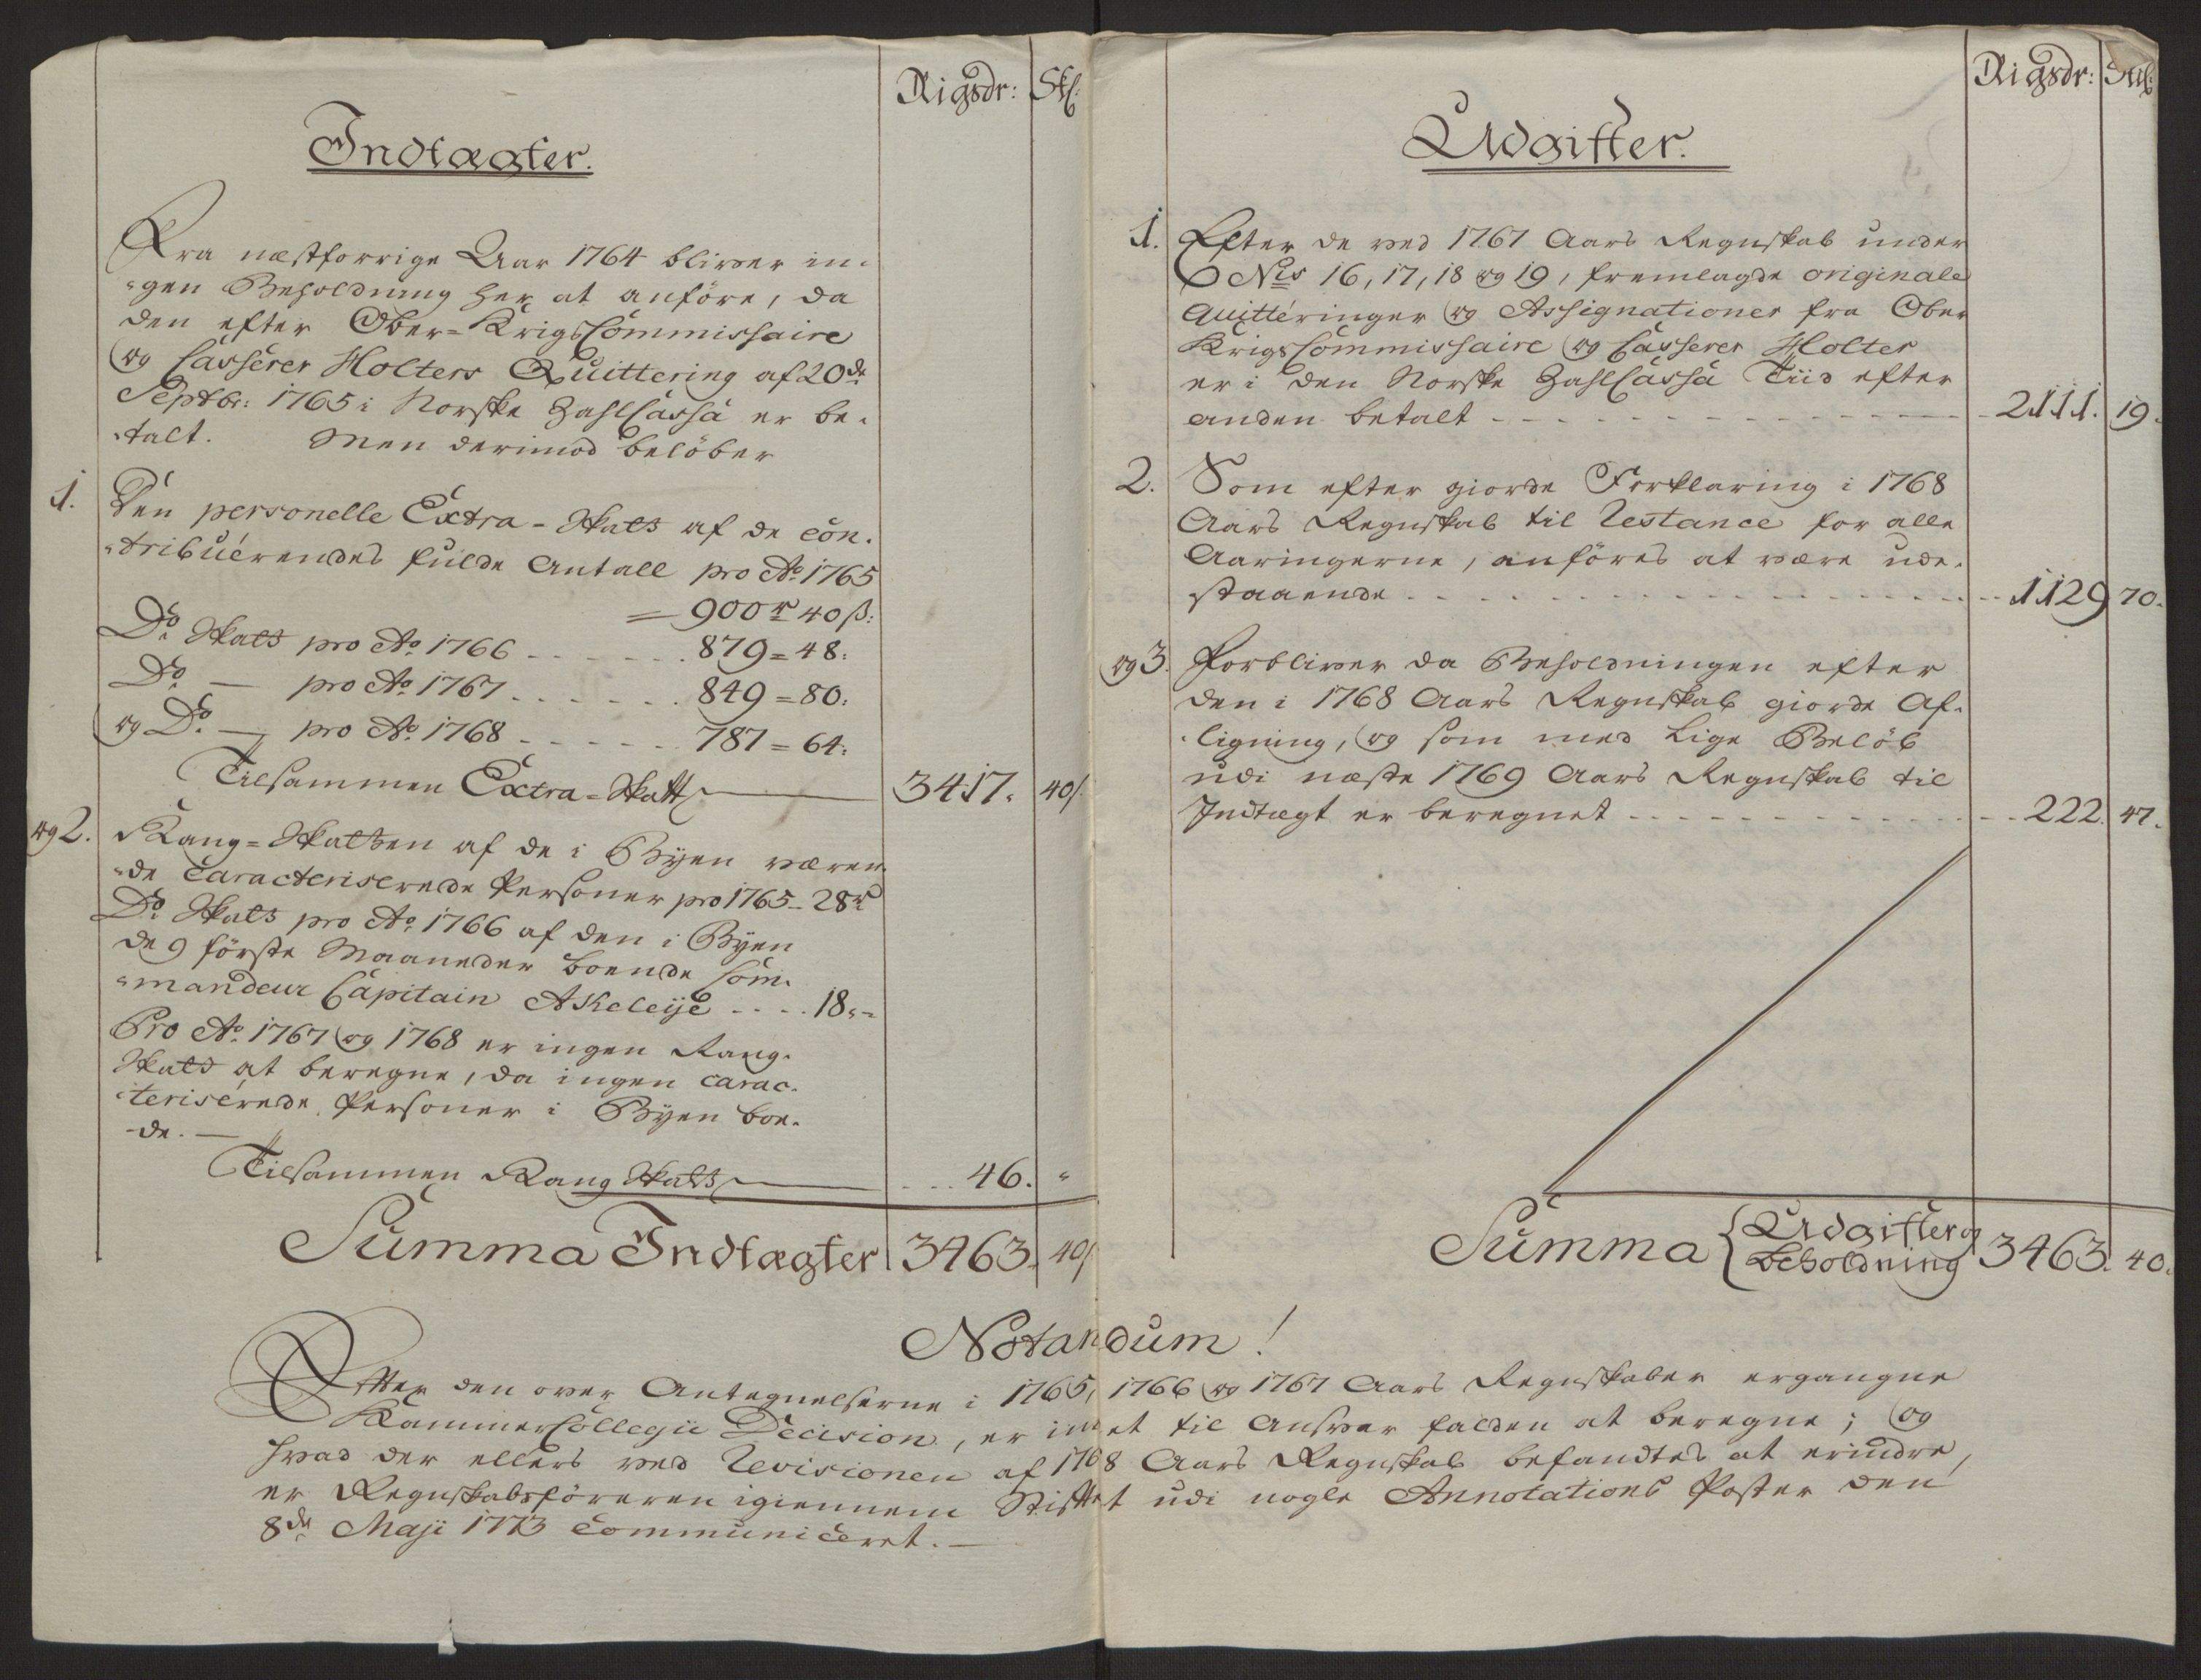 Rigsdr: Skl:
Indtægter.
Fra næstforrige Aar 1764 bliver in-
-gen Beholdning her at anföre, da
den efter Ober-KrigsCommissaire
og Casserer Holters Quittering af 20de
Septbr: 1765 i Norske ZahlCassa er be-
-talt. Men derimod belöber
1. Den personelle Extra-Skatt af de con-
-tribuerendes fulde Antall pro Ao 1765
= 900r 40 ß:
Do Skatt pro Ao 1766 - - - - - - 879 = 48:
Do — pro Ao 1767 - - - - - - 849 = 80:
og Do — pro Ao 1768 - - - - - - 787 = 64:
Tilsammen Extra-Skatt — 3417. 40/
og 2. Rang-Skatten af de i Byen væren-
-de Caracteriserede Personer pro 1765 - 28r
Do Skatt pro Ao 1766 af den i Byen
de 9 förste Maaneder boende Com-
-mandeur Capitain Akeleije - - - - 18 „ -
Pro Ao 1767 og 1768 er ingen Rang-
Skatt at beregne, da ingen carac-
-teriserede Personer i Byen boe-
-de. —
Tilsammen Rang Skatt — 46. "
Summa Indtægter 3463. 40/
Rigsdr: Skl:
Udgifter.
1. Efter de ved 1767 Aars Regnskab under
Nis 16, 17, 18 og 19, fremlagde originale
Quitteringer og Assignationer fra Ober
KrigsCommissaire og Casserer Holter
er i den Norske ZahlCassa Tiid efter
anden betalt - - - - - - 2111. 19.
2. Som efter giorde Forklaring i 1768
Aars Regnskab til Restance for alle
Aaringerne, anföres at være ude-
staaende - - - - - - 1129 70.
og 3. Forbliver da Beholdningen efter
den i 1768 Aars Regnskab giorde Af-
-ligning, og som med Lige Belöb
udi næste 1769 Aars Regnskab til
Indtægt er beregnet - - - - - - 222. 47.
Summa { Udgifter og
Beholdning 3463. 40.
Notandum!
Efter den over Antegnelserne i 1765, 1766 og 1767 Aars Regnskaber ergangne
KammerCollegii Decision, er intet til Ansvar falden at beregne; og
hvad der ellers ved Revisionen af 1768 Aars Regnskab befandtes at erindre,
er Regnskabsföreren igiennem Stiftet udi nogle Annotations Poster den
8de Maji 1773 communiceret. —